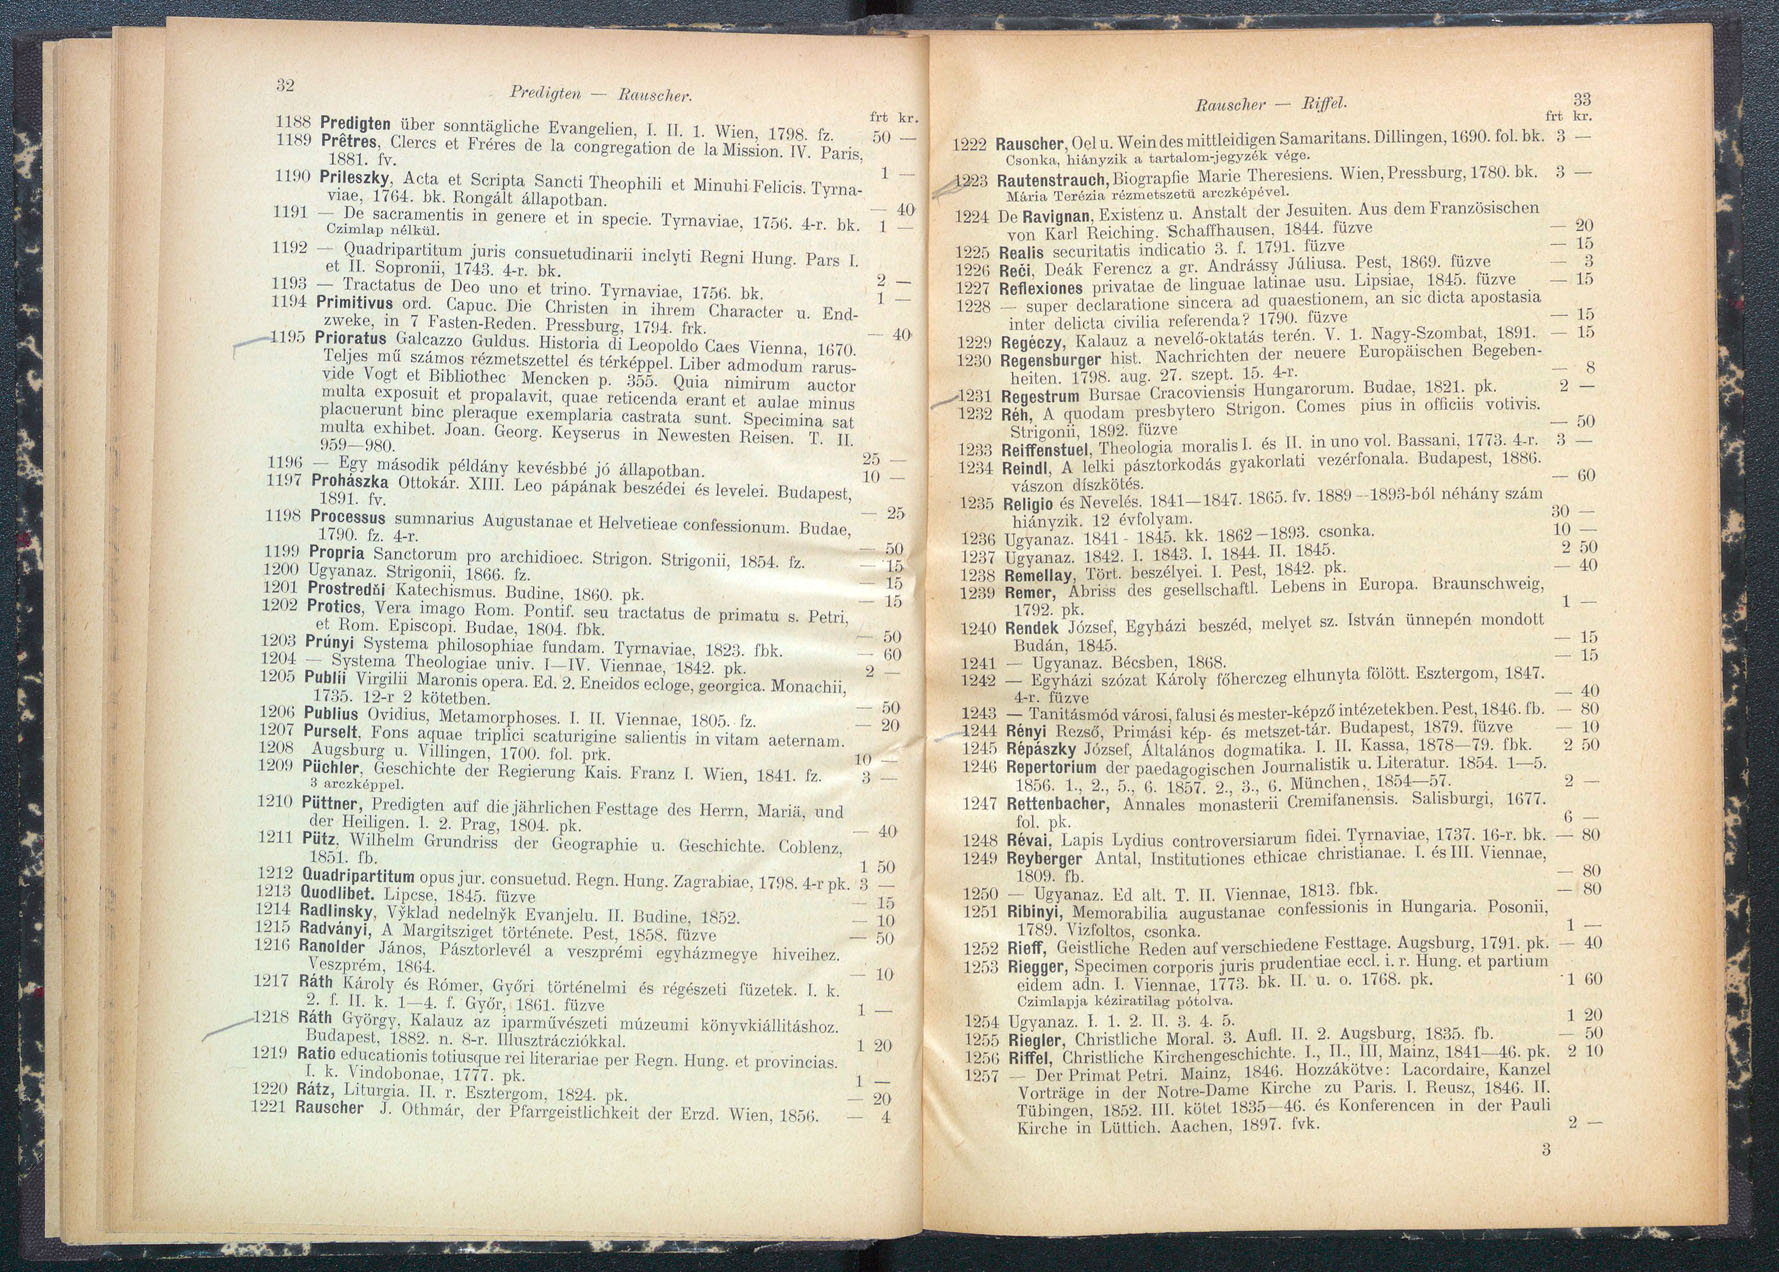 32
Predigten — Rauscher.
frt kr.
1188 Predigten über sonntägliche Evangelien, I. II. 1. Wien, 1798. fz. 50 —
1189 Prêtres, Clercs et Fréres de la congregation de la Mission. IV. Paris,
1881. fv. 1 —
1190 Prileszky, Acta et Scripta Sancti Theophili et Minuhi Felicis. Tyrna-
viae, 1764. bk. Rongált állapotban. — 40
1191 — De sacramentis in genere et in specie. Tyrnaviae, 1756. 4-r. bk. 1 —
Czimlap nélkül.
1192 — Quadripartitum juris consuetudinarii inclyti Regni Hung. Pars I.
et II. Sopronii, 1743. 4-r. bk. 2 —
1193 — Tractatus de Deo uno et trino. Tyrnaviae, 1756. bk. 1 —
1194 Primitivus ord. Capuc. Die Christen in ihrem Character u. End-
zweke, in 7 Fasten-Reden. Pressburg, 1794. frk. — 40
1195 Prioratus Galcazzo Guldus. Historia di Leopoldo Caes Vienna, 1670.
Teljes mű számos rézmetszettel és térképpel. Liber admodum rarus-
vide Vogt et Bibliothec Mencken p. 355. Quia nimirum auctor
multa exposuit et propalavit, quae reticenda erant et aulae minus
placuerunt binc pleraque exemplaria castrata sunt. Specimina sat
multa exhibet. Joan. Georg. Keyserus in Newesten Reisen. T. II.
959—980. 25 —
1196 — Egy második példány kevésbbé jó állapotban. 10 —
1197 Prohászka Ottokár. XIII. Leo pápának beszédei és levelei. Budapest,
1891. fv. — 25
1198 Processus sumnarius Augustanae et Helvetieae confessionum. Budae,
1790. fz. 4-r. — 50
1199 Propria Sanctorum pro archidioec. Strigon. Strigonii, 1854. fz. — 15
1200 Ugyanaz. Strigonii, 1866. fz. — 15
1201 Prostredňi Katechismus. Budine, 1860. pk. — 15
1202 Protics, Vera imago Rom. Pontif. seu tractatus de primatu s. Petri,
et Rom. Episcopi. Budae, 1804. fbk. — 50
1203 Prúnyi Systema philosophiae fundam. Tyrnaviae, 1823. fbk. — 60
1204 — Systema Theologiae univ. I—IV. Viennae, 1842. pk. 2 —
1205 Publii Virgilii Maronis opera. Ed. 2. Eneidos ecloge, georgica. Monachii,
1735. 12-r 2 kötetben. — 50
1206 Publius Ovidius, Metamorphoses. I. II. Viennae, 1805. fz. — 20
1207 Purselt, Fons aquae triplici scaturigine salientis in vitam aeternam.
1208 Augsburg u. Villingen, 1700. fol. prk. 10 —
1209 Püchler, Geschichte der Regierung Kais. Franz I. Wien, 1841. fz. 3 —
3 arczképpel.
1210 Püttner, Predigten auf die jährlichen Festtage des Herrn, Mariä, und
der Heiligen. 1. 2. Prag, 1804. pk. — 40
1211 Pütz, Wilhelm Grundriss der Geographie u. Geschichte. Coblenz,
1851. fb. 1 50
1212 Quadripartitum opus jur. consuetud. Regn. Hung. Zagrabiae, 1798. 4-r pk. 3 —
1213 Quodlibet. Lipcse, 1845. füzve — 15
1214 Radlinsky, Výklad nedelnýk Evanjelu. II. Budine, 1852. — 10
1215 Radványi, A Margitsziget története. Pest, 1858. füzve — 50
1216 Ranolder János, Pásztorlevél a veszprémi egyházmegye hiveihez.
Veszprém, 1864. — 10
1217 Ráth Károly és Rómer, Győri történelmi és régészeti füzetek. I. k.
2. f. II. k. 1—4. f. Győr, 1861. füzve 1 —
1218 Ráth György, Kalauz az iparművészeti múzeumi könyvkiállitáshoz.
Budapest, 1882. n. 8-r. Illusztrácziókkal. 1 20
1219 Ratio educationis totiusque rei literariae per Regn. Hung. et provincias.
I. k. Vindobonae, 1777. pk. 1 —
1220 Rátz, Liturgia. II. r. Esztergom, 1824. pk. — 20
1221 Rauscher J. Othmár, der Pfarrgeistlichkeit der Erzd. Wien, 1856. — 4
Rauscher — Riffel.
33
frt kr.
1222 Rauscher, Oel u. Wein des mittleidigen Samaritans. Dillingen, 1690. fol. bk. 3 —
Csonka, hiányzik a tartalom-jegyzék vége.
1223 Rautenstrauch, Biograpfie Marie Theresiens. Wien, Pressburg, 1780. bk. 3 —
Mária Terézia rézmetszetü arczképével.
1224 De Ravignan, Existenz u. Anstalt der Jesuiten. Aus dem Französischen
von Karl Reiching. Schaffhausen, 1844. füzve — 20
1225 Realis securitatis indicatio 3. f. 1791. füzve — 15
1226 Reči, Deák Ferencz a gr. Andrássy Júliusa. Pest, 1869. füzve — 3
1227 Reflexiones privatae de linguae latinae usu. Lipsiae, 1845. füzve — 15
1228 — super declaratione sincera ad quaestionem, an sic dicta apostasia
inter delicta civilia referenda? 1790. füzve — 15
1229 Regéczy, Kalauz a nevelő-oktatás terén. V. 1. Nagy-Szombat, 1891. — 15
1230 Regensburger hist. Nachrichten der neuere Europäischen Begeben-
heiten. 1798. aug. 27. szept. 15. 4-r. — 8
1231 Regestrum Bursae Cracoviensis Hungarorum. Budae, 1821. pk. 2 —
1232 Réh, A quodam presbytero Strigon. Comes pius in officiis votivis.
Strigonii, 1892. füzve — 50
1233 Reiffenstuel, Theologia moralis I. és II. in uno vol. Bassani, 1773. 4-r. 3 —
1234 Reindl, A lelki pásztorkodás gyakorlati vezérfonala. Budapest, 1886.
vászon díszkötés. — 60
1235 Religio és Nevelés. 1841—1847. 1865. fv. 1889—1893-ból néhány szám
hiányzik. 12 évfolyam. 30 —
1236 Ugyanaz. 1841 - 1845. kk. 1862—1893. csonka. 10 —
1237 Ugyanaz. 1842. I. 1843. I. 1844. II. 1845. 2 50
1238 Remellay, Tört. beszélyei. I. Pest, 1842. pk. — 40
1239 Remer, Abriss des gesellschaftl. Lebens in Europa. Braunschweig,
1792. pk. 1 —
1240 Rendek József, Egyházi beszéd, melyet sz. István ünnepén mondott
Budán, 1845. — 15
1241 — Ugyanaz. Bécsben, 1868. — 15
1242 — Egyházi szózat Károly főherczeg elhunyta fölött. Esztergom, 1847.
4-r. füzve — 40
1243 — Tanitásmód városi, falusi és mester-képző intézetekben. Pest, 1846. fb. — 80
1244 Rényi Rezső, Primási kép- és metszet-tár. Budapest, 1879. füzve — 10
1245 Répászky József, Általános dogmatika. I. II. Kassa, 1878—79. fbk. 2 50
1246 Repertorium der paedagogischen Journalistik u. Literatur. 1854. 1—5.
1856. 1., 2., 5., 6. 1857. 2., 3., 6. München, 1854—57. 2 —
1247 Rettenbacher, Annales monasterii Cremifanensis. Salisburgi, 1677.
fol. pk. 6 —
1248 Révai, Lapis Lydius controversiarum fidei. Tyrnaviae, 1737. 16-r. bk. — 80
1249 Reyberger Antal, Institutiones ethicae christianae. I. és III. Viennae,
1809. fb. — 80
1250 — Ugyanaz. Ed alt. T. II. Viennae, 1813. fbk. — 80
1251 Ribinyi, Memorabilia augustanae confessionis in Hungaria. Posonii,
1789. Vizfoltos, csonka. 1 —
1252 Rieff, Geistliche Reden auf verschiedene Festtage. Augsburg, 1791. pk. — 40
1253 Riegger, Specimen corporis juris prudentiae eccl. i. r. Hung. et partium
eidem adn. I. Viennae, 1773. bk. II. u. o. 1768. pk. 1 60
Czimlapja kéziratilag pótolva.
1254 Ugyanaz. I. 1. 2. II. 3. 4. 5. 1 20
1255 Riegler, Christliche Moral. 3. Aufl. II. 2. Augsburg, 1835. fb. — 50
1256 Riffel, Christliche Kirchengeschichte. I., II., III, Mainz, 1841—46. pk. 2 10
1257 — Der Primat Petri. Mainz, 1846. Hozzákötve: Lacordaire, Kanzel
Vorträge in der Notre-Dame Kirche zu Paris. I. Reusz, 1846. II.
Tübingen, 1852. III. kötet 1835—46. és Konferencen in der Pauli
Kirche in Lüttich. Aachen, 1897. fvk. 2 —
3